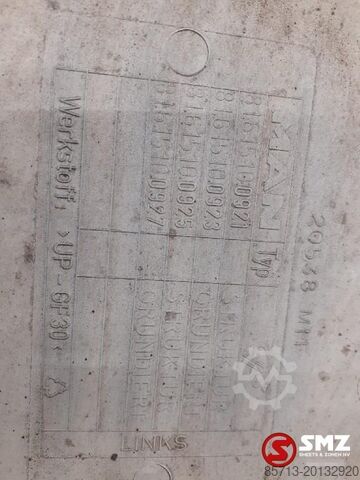 20548 M11
MAN Typ
81.61510.0921 STRUKTUR
81.61510.0923 GRUNDIERT
81.61510.0925 STRUKTUR
81.61510.0927 GRUNDIERT
Werkstoff: >UP-GF30<
LINKS
SMZ
SMEETS & ZONEN NV
85713-20132920